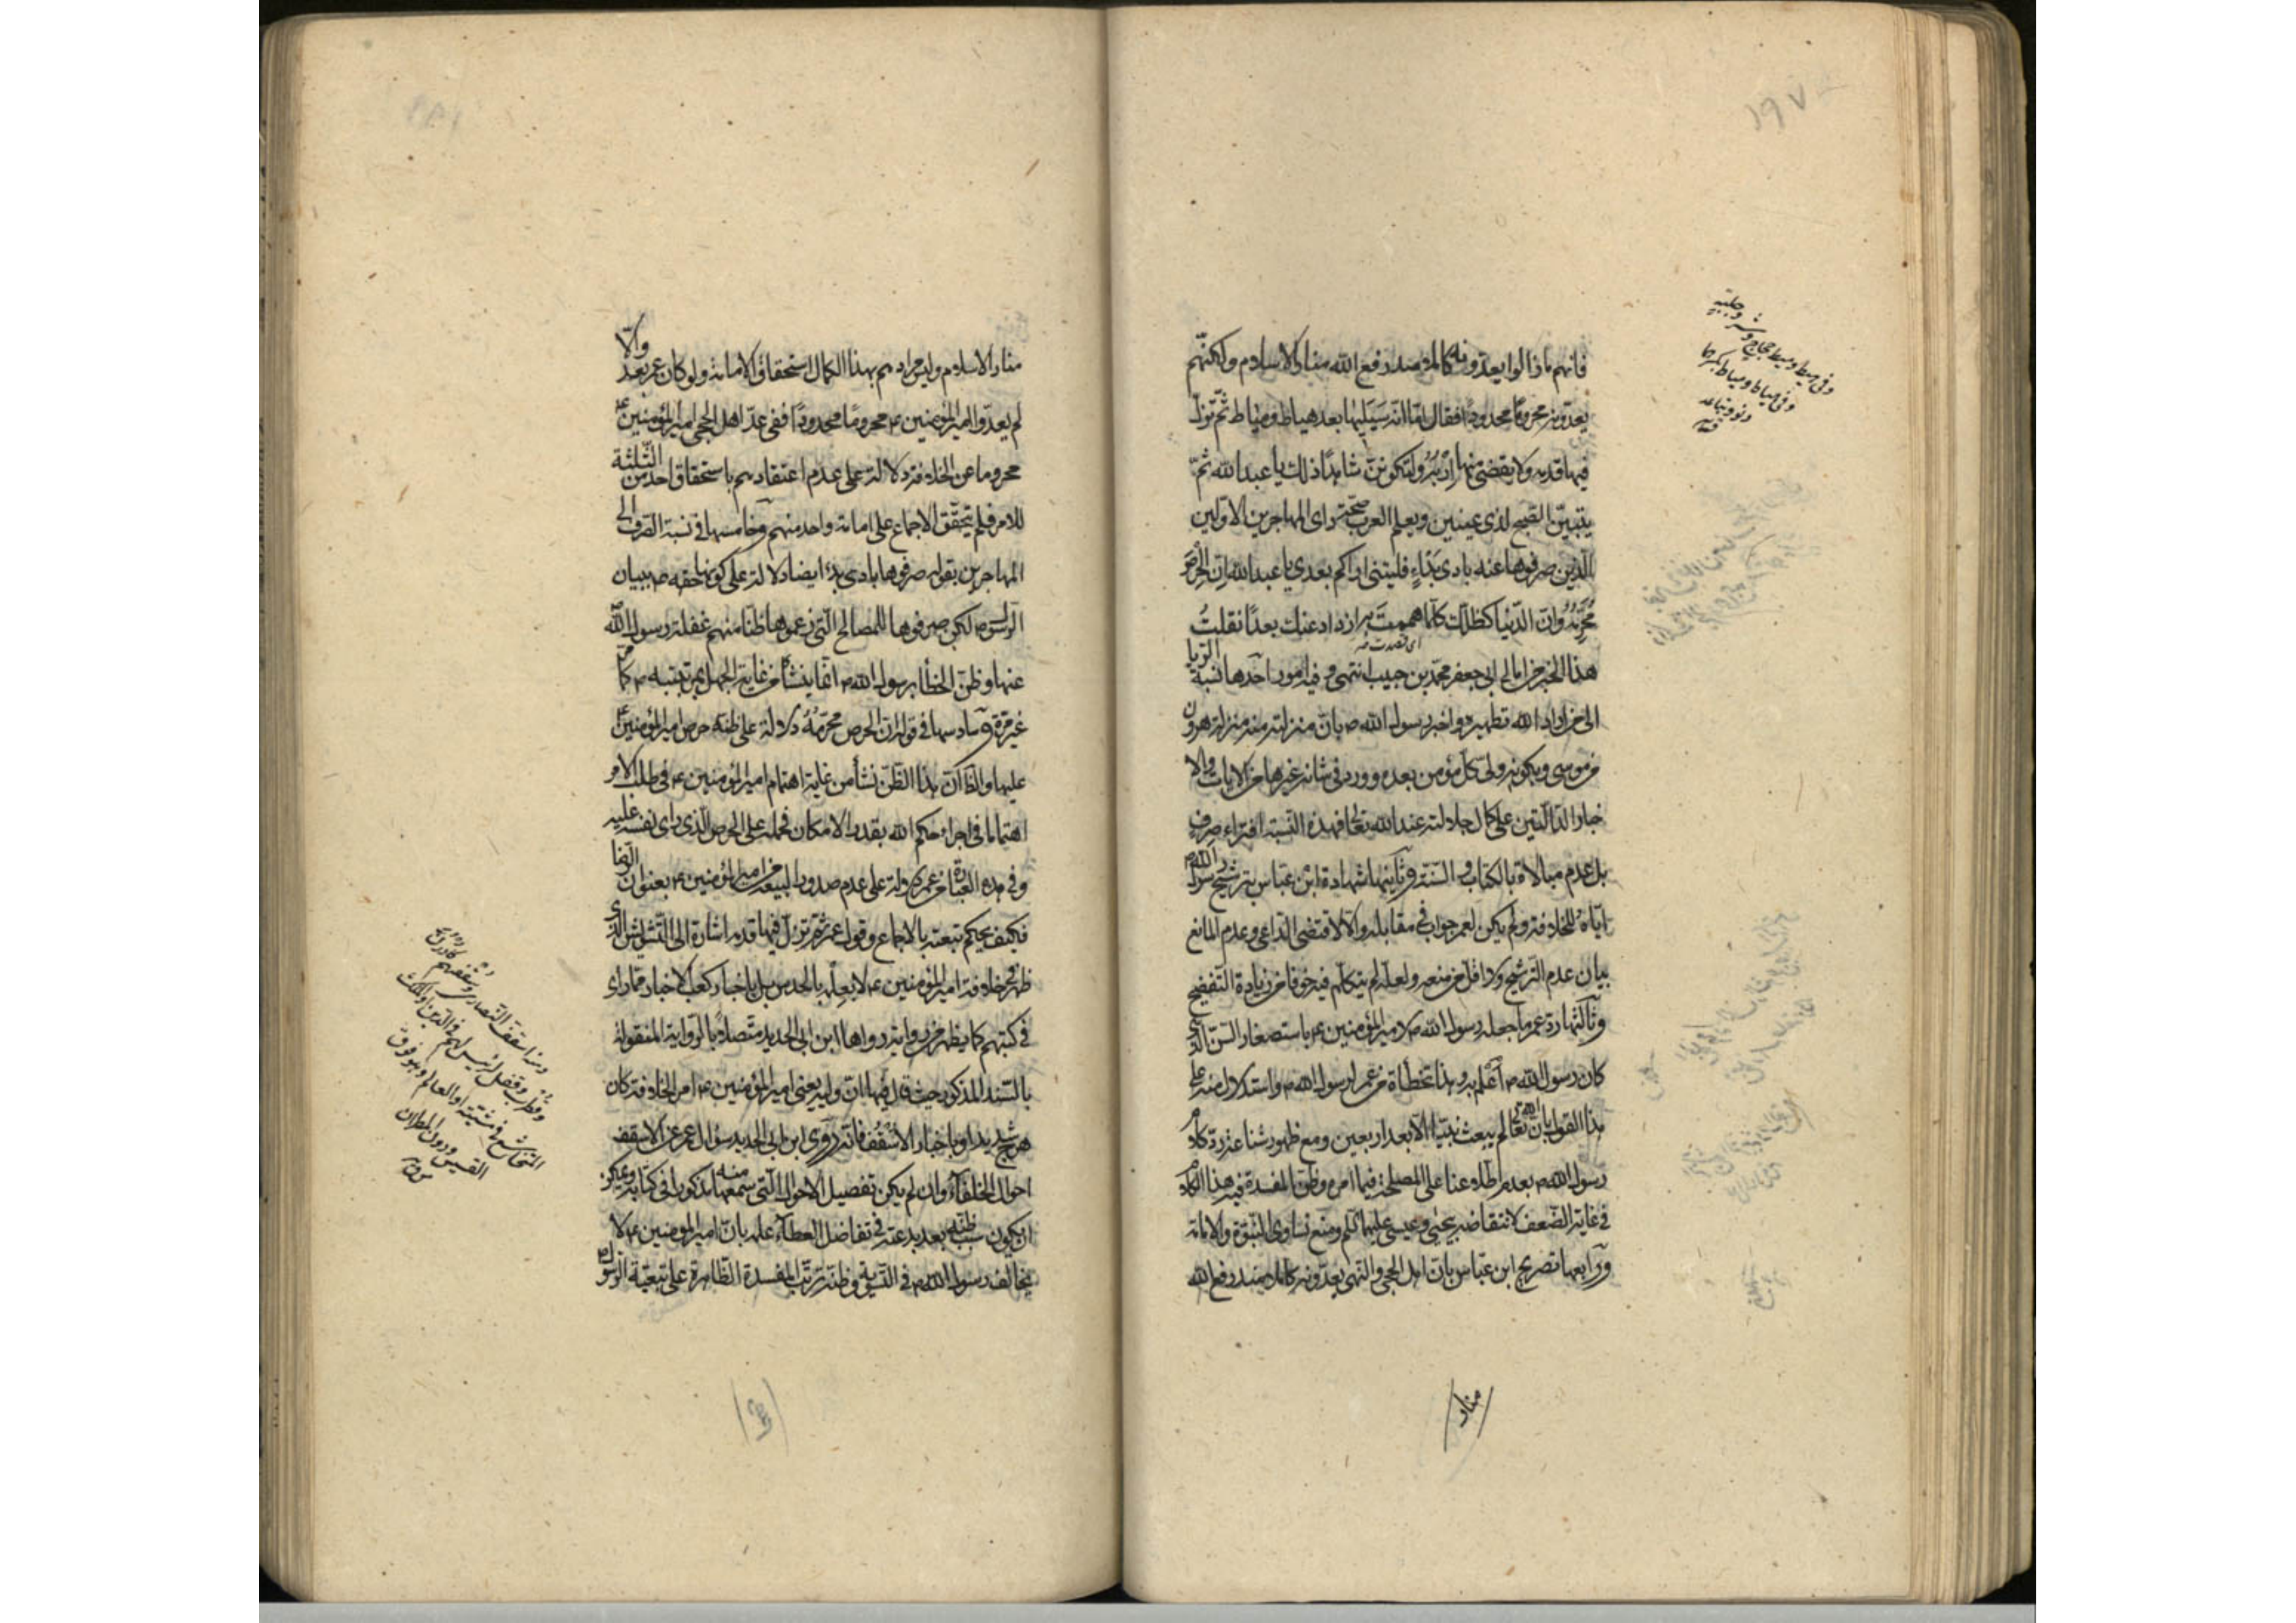 ١٩٧
فانهم ماذالوا يعدونه كاملا منذ رفع الله منار الاسلام ولكنهم
يعدونه محروما محدودا فقال اما انه سيليها بعد هياط ومياط ثم تزل
فيها قدمه ولا يقضى منها اربه ولتكونن شاهدا ذلك يا عبد الله ثم
يتبين الصبح لذى عينين ويعلم العرب صحة راى المهاجرين الاولين
الذين صرفوها عنه بادى بدء فليتنى اراكم بعدى يا عبد الله ان الحرص
محرمة وان الدنيا كظلك كلما هممت به ازداد عنك بعدا نقلت
اى قصدت
هذا الخبر من امالى ابى جعفر محمد بن حبيب انتهى وفيه امور احدها نسبة الريا
الى من اراد الله تطهيره واخبر رسول الله ص بان منزلته منه منزلة هرون
من موسى وبكونه ولى كل مؤمن بعده وورد فى شانه غيرها من الايات والا
خبار الدالتين على كمال جلالته عند الله تعالى فهذه النسبة افتراء صرف
بل عدم مبالاة بالكتاب والسنة وثانيتها شهادة ابن عباس بترشيح رسول الله ص
اياه للخلافة ولم يكن لعمر جواب فى مقابله والا لاقتضى الداعى وعدم المانع
بيان عدم الترشيح ولا اقل من منعه ولعله لم يتكلم فيه خوفا من زيادة التفضيح
وثالثتها رد عمر ما جعله رسول الله ص لامير المؤمنين ع باستصغار السن الذى
كان رسول الله ص اعلم به وهذا تخطأة من عمر لرسول الله ص واستدلال منه على
هذا القول بان الله تعالى لم يبعث نبيا الا بعد اربعين ومع ظهور شناعة رد كلام
رسول الله ص بعدم اطلاعنا على المصلحة فيما امره وظن المفسدة فيه هذا الكلام
فى غاية الضعف لانتقاضه بيحيى وعيسى عليهما السلم ومنع تساوى النبوة والامامة
ورابعها تصريح ابن عباس بان اهل الحجى والنهى يعدونه كاملا منذ رفع الله
منار
منار الاسلام وليس مرادهم بهذا الكمال استحقاق الامامة ولو كان عمر بعد والا
لم يعدوا امير المؤمنين ع محروما محدودا ففى عد اهل الحجى امير المؤمنين ع
محروما عن الخلافة دلالة على عدم اعتقادهم باستحقاق احد من الثلثة
للامر فلم يتحقق الاجماع على امامة واحد منهم وخامسها فى نسبة الصرف الى
المهاجرين بقوله صرفوها بادى بدء ايضا دلالة على كونها حقه ص ببيان
الرسول ص لكن صرفوها للمصالح التى زعموها ظنا منهم غفلة رسول الله ص
عنها وظن الخطأ برسول الله ص انما ينشأ من غاية الجهل بمرتبته ص كما مر
غير مرة وسادسها فى قوله ان الحرص محرمة دلالة على ظنه حرص امير المؤمنين ع
عليها والظ ان هذا الظن نشأ من غاية اهتمام امير المؤمنين ع فى طلب الامر
اهتماما فى اجراء حكم الله بقدر الامكان فحمله على الحرص الذى راى نفسه عليه
وفى هذه العبارة من عمر دلالة على عدم صدور البيعة من امير المؤمنين ع بعنوان الرضا
فكيف يحكم تبعته بالاجماع وقول عمر ثم تزل فيها قدمه اشارة الى التشويش الذى
ظهر فى خلافة امير المؤمنين ع لا بعلمه بالحدس بل باخبار كعب الاحبار مما راى
فى كتبهم كما يظهر من رواية رواها ابن ابى الحديد متصلا بالرواية المنقولة
بالسند المذكور حيث قال فيها بان وليه يعنى امير المؤمنين ع امر الخلافة كان
هرج شديد او باخبار الاسقف فانه روى ابن ابى الحديد سؤال عمر عن الاسقف
احوال الخلفاء وان لم يكن تفصيل الاحوال التى سمعها منه مذكورا فى كتابه ويمكن
ان يكون سبب ظنه بعد بدعته فى تفاضل العطاء علمه بان امير المؤمنين ع لا
يخالف رسول الله ص فى التسوية وظنه ترتب المفسدة الظاهرة على تبعية الرسول ص